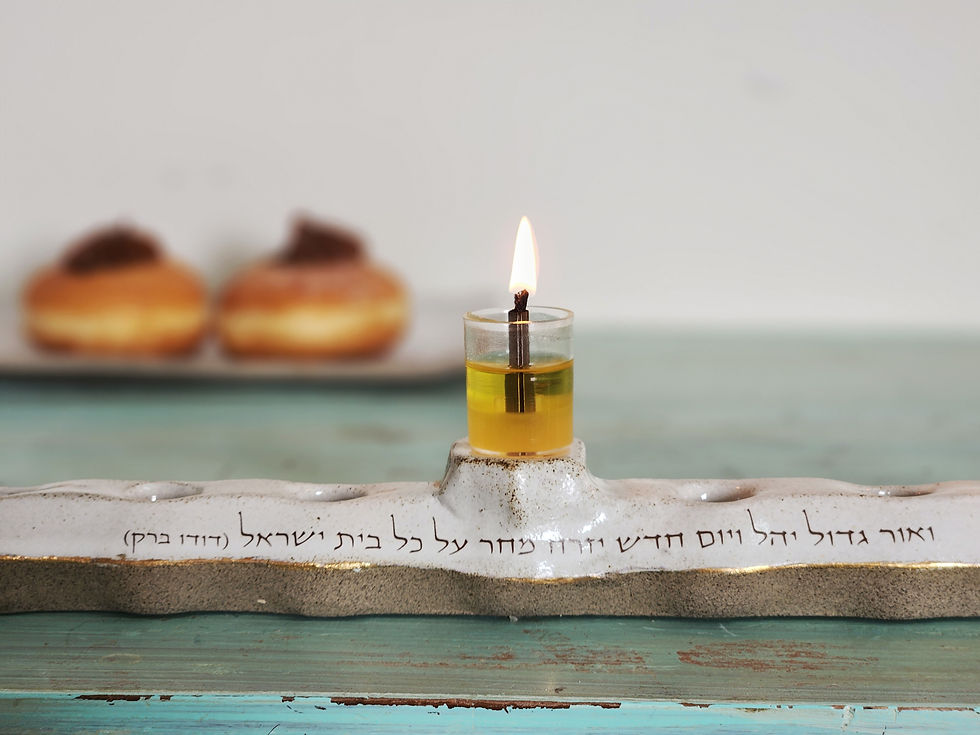 ואור גדול יהל ויום חדש יזרח מחר על כל בית ישראל (דודו ברק)